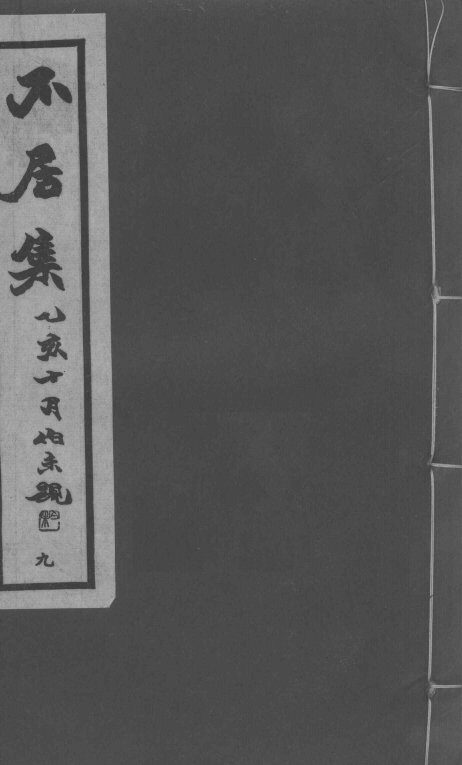 不居集
乙亥十月伯未題
九